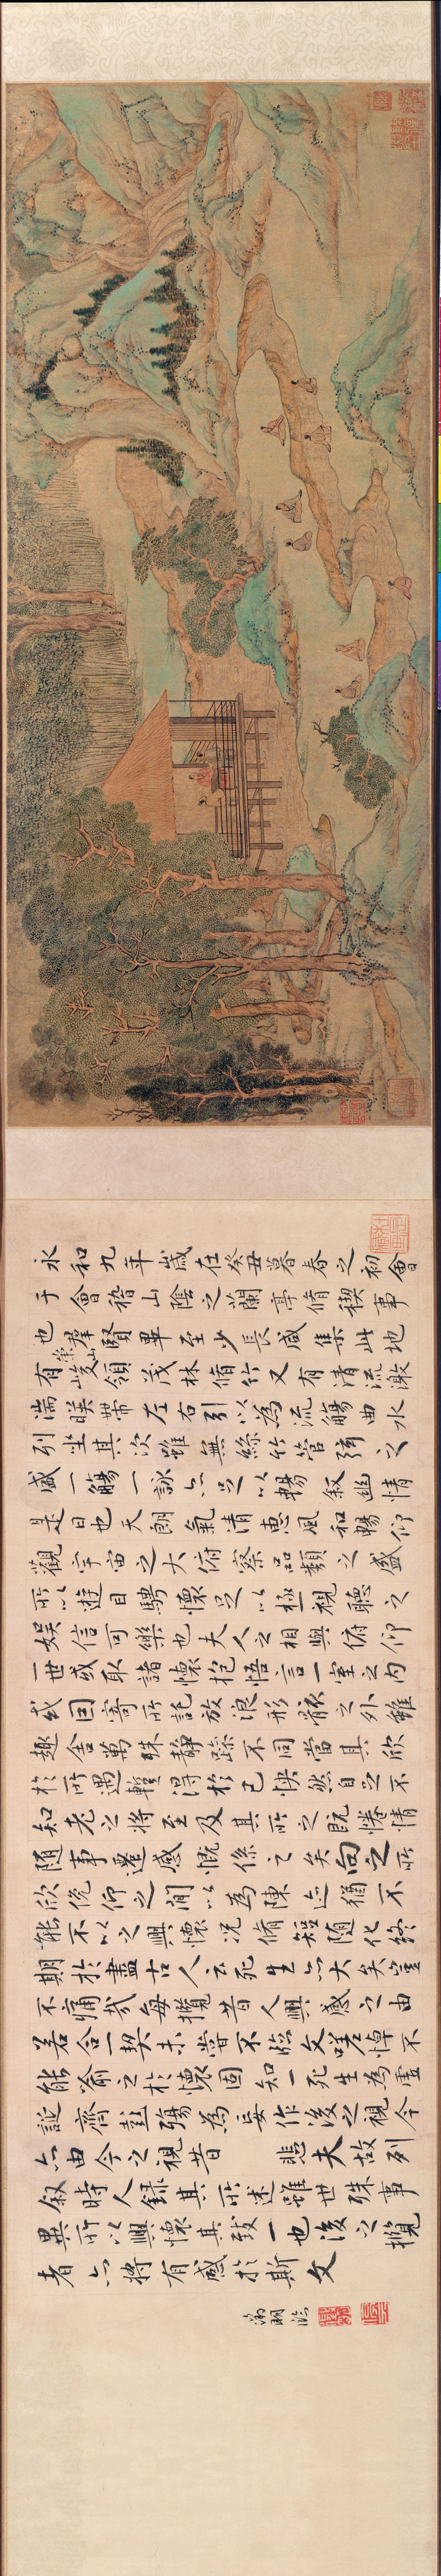 永和九年歲在癸丑暮春之初會
于會稽山陰之蘭亭脩禊事
也羣賢畢至少長咸集此地
有崇山峻領茂林脩竹又有清流激
湍暎帶左右引以為流觴曲水
列坐其次雖無絲竹管弦之
盛一觴一詠亦足以暢敘幽情
是日也天朗氣清惠風和暢仰
觀宇宙之大俯察品類之盛
所以遊目騁懷足以極視聽之
娛信可樂也夫人之相與俯仰
一世或取諸懷抱悟言一室之內
或因寄所託放浪形骸之外雖
趣舍萬殊靜躁不同當其欣
於所遇暫得於己怏然自足不
知老之將至及其所之既惓情
隨事遷感慨係之矣向之所
欣俛仰之間以為陳迹猶不
能不以之興懷況脩短隨化終
期於盡古人云死生亦大矣豈
不痛哉每攬昔人興感之由
若合一契未嘗不臨文嗟悼不
能喻之於懷固知一死生為虛
誕齊彭殤為妄作後之視今
亦由今之視昔 悲夫故列
敘時人錄其所述雖世殊事
異所以興懷其致一也後之攬
者亦將有感於斯文
徵明臨